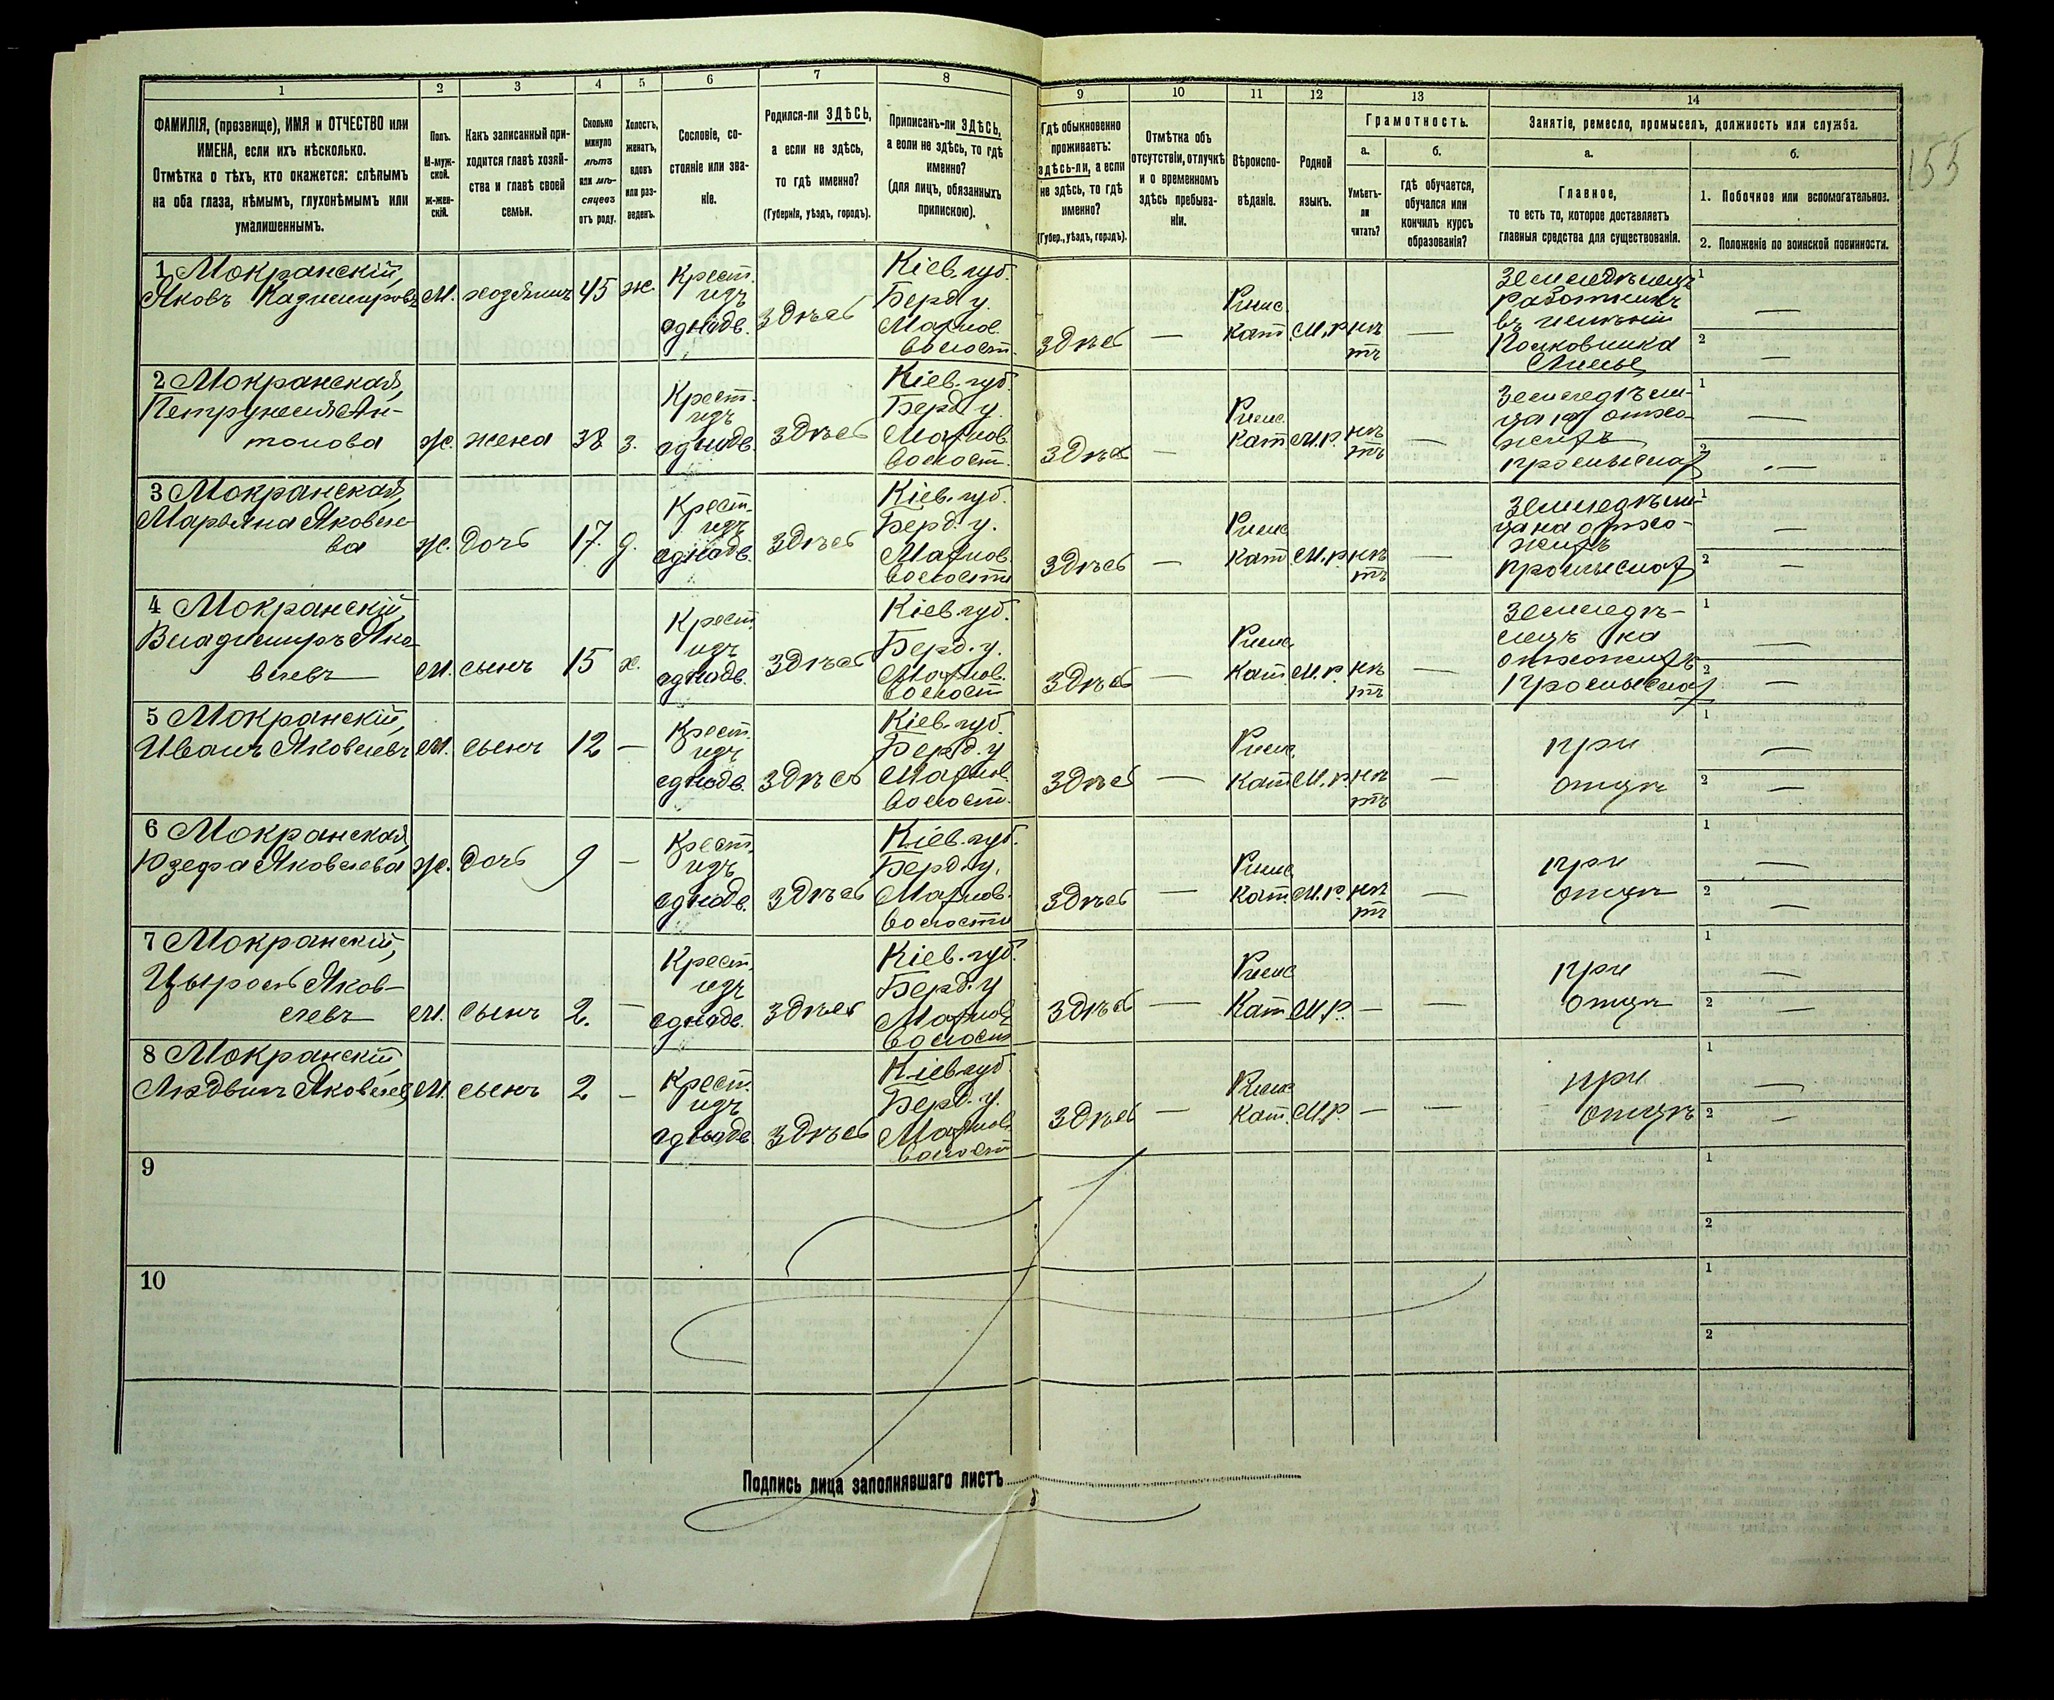 1
2
3
4
5
6
7
8
9
10
11
12
13
14
ФАМИЛІЯ, (прозвище), ИМЯ и ОТЧЕСТВО или
ИМЕНА, если ихъ нѣсколько.
Отмѣтка о тѣхъ, кто окажется: слѣпымъ
на оба глаза, нѣмымъ, глухонѣмымъ или
умалишеннымъ.
Полъ.
М-муж-
ской.
ж-жен-
скій.
Какъ записанный при-
ходится главѣ хозяй-
ства и главѣ своей
семьи.
Сколько
минуло
лѣтъ
или мѣ-
сяцевъ
отъ роду.
Холостъ,
женатъ,
вдовъ
или раз-
веденъ.
Сословіе, со-
стояніе или зва-
ніе.
Родился-ли ЗДѢСЬ,
а если не здѣсь,
то гдѣ именно?
(Губернія, уѣздъ, городъ).
Приписанъ-ли ЗДѢСЬ,
а если не здѣсь, то гдѣ
именно?
(для лицъ, обязанныхъ
припискою).
Гдѣ обыкновенно
проживаетъ:
здѣсь-ли, а если
не здѣсь, то гдѣ
именно?
(Губер., уѣздъ, городъ).
Отмѣтка объ
отсутствіи, отлучкѣ
и о временномъ
здѣсь пребыва-
ніи.
Вѣроиспо-
вѣданіе.
Родной
языкъ.
Грамотность.
а.
Умѣетъ-
ли
читать?
б.
гдѣ обучается,
обучался или
кончилъ курсъ
образованія?
Занятіе, ремесло, промыселъ, должность или служба.
а.
Главное,
то есть то, которое доставляетъ
главныя средства для существованія.
б.
1. Побочное или вспомогательное.
2. Положеніе по воинской повинности.
155
1 Мокранскій,
Яковъ Кадимировъ
М.
хозяинъ
45
ж.
Крест.
изъ
однодв.
здѣсь
Кіев. губ.
Берд. у.
Махнов.
волост.
здѣсь
—
Римс.
Кат.
М.р.
нѣ
тъ
—
Земледѣлецъ
работникъ
въ имѣніи
Полковника
1 —
2 —
2 Мокранская,
Петрунеля Ан-
тонова
ж.
жена
38
з.
Крест.
изъ
однодв.
здѣсь
Кіев. губ.
Берд. у.
Махнов.
волост.
здѣсь
—
Римс.
Кат.
М.р.
нѣ
тъ
—
Земледѣли-
ца на отхо-
жихъ
промыслах
1 —
2 —
3 Мокранская,
Марьяна Яковле-
ва
ж.
дочь
17.
д.
Крест.
изъ
однодв.
здѣсь
Кіев. губ.
Берд. у.
Махнов.
волости
здѣсь
—
Римс.
Кат.
М.р.
нѣ
тъ
—
Земледѣли-
ца на отхо-
жихъ
промыслах
1 —
2 —
4 Мокранскій,
Владимиръ Яко-
влевъ
М.
сынъ
15
х.
Крест.
изъ
однодв.
здѣсь
Кіев. губ.
Берд. у.
Махнов.
волост
здѣсь
—
Римс.
Кат.
М.р.
нѣ
тъ
Земледѣ-
лецъ на
отхожихъ
промыслах
1 —
2 —
5 Мокранскій,
Иванъ Яковлевъ
М.
сынъ
12
—
Крест.
изъ
однодв.
здѣсь
Кіев. губ.
Берд. у
Махнов.
волост.
здѣсь
—
Римс.
Кат.
М.р.
нѣ
тъ
—
при
отцѣ
1 —
2 —
6 Мокранская,
Юзефа Яковлева
ж.
дочь
9
—
Крест.
изъ
однодв.
здѣсь
Кіев. губ.
Берд. у.
Махнов.
волости
здѣсь
—
Римс.
Кат.
М.р.
нѣ
тъ
—
при
отцѣ
1 —
2 —
7 Мокранскій,
Яков-
левъ
М.
сынъ
2.
—
Крест.
изъ
однодв.
здѣсь
Кіев. губ.
Берд. у
Махнов.
волост
здѣсь
—
Римс
Кат
М.р.
—
—
при
отцѣ
1 —
2 —
8 Мокранскій,
Людвигъ Яковлев
М.
сынъ
2
—
Крест.
изъ
однодв
здѣсь
Кіев губ
Берд. у.
Махнов.
волост
здѣсь
—
Римс.
Кат.
М.р.
—
—
при
отцѣ
1 —
2 —
9
1
2
10
1
2
Подпись лица заполнявшаго листъ